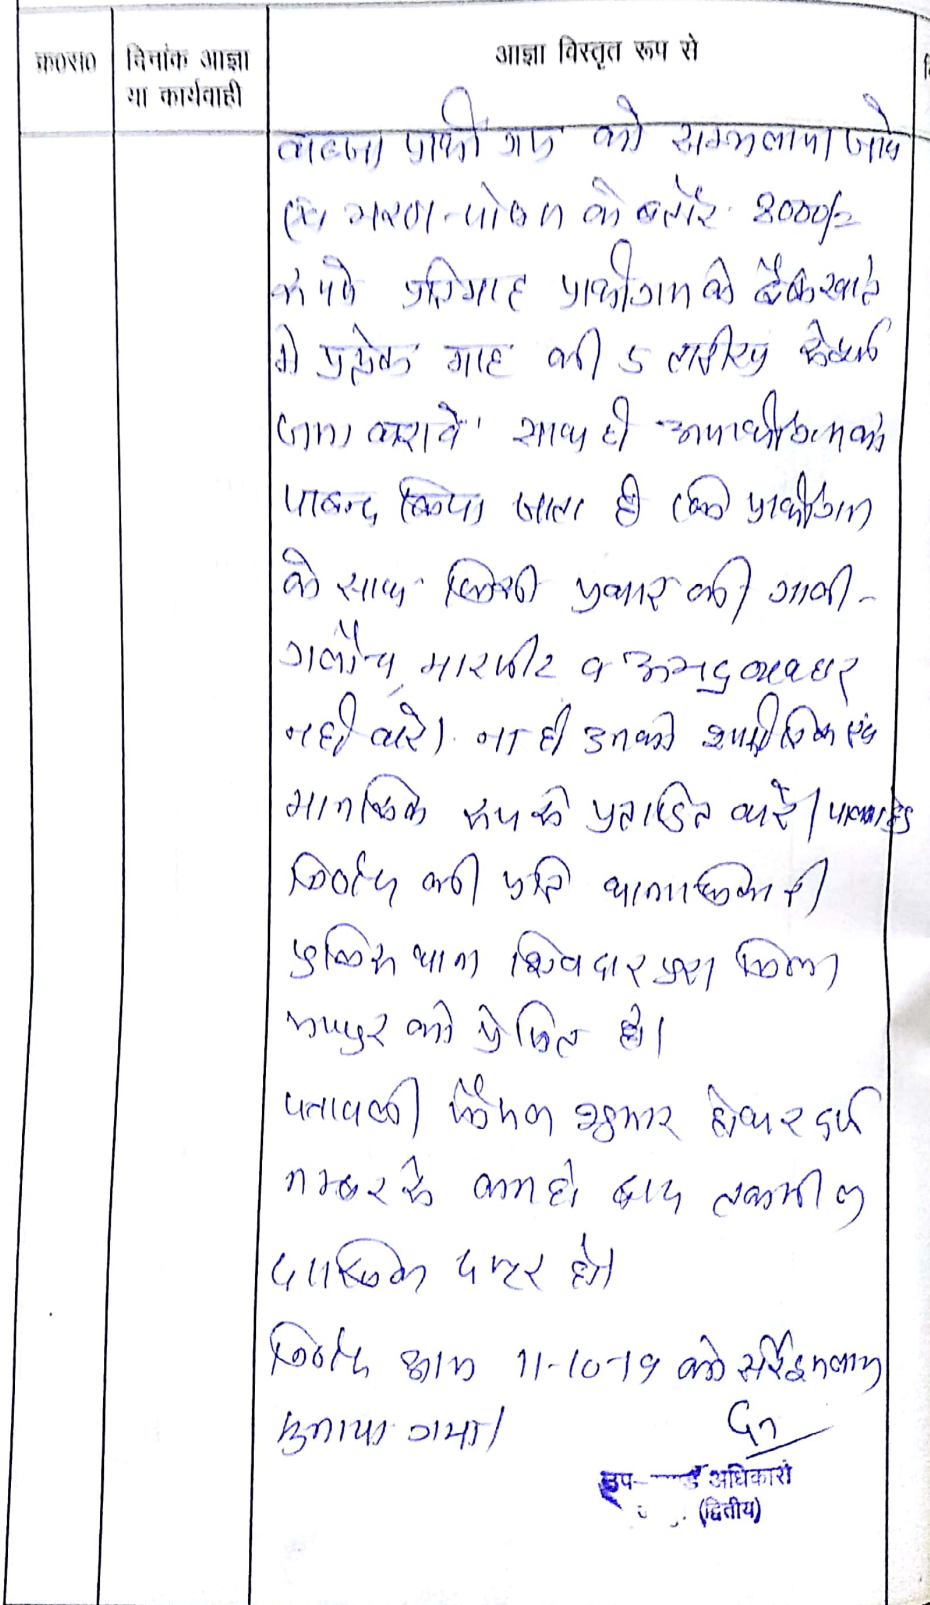 क्र०सं० दिनांक आज्ञा या कार्यवाही आज्ञा विस्तृत रूप से
प्रार्थी गण को सम्भलाया जावे
भरण-पोषण के बतौर 8000/=
रूपये प्रतिमाह प्रार्थीगण के बैंक खाते
मे प्रत्येक माह की 5 तारीख से पूर्व
जमा करावे। साथ ही अप्रार्थीगण को
पाबन्द किया जाता है कि प्रार्थीगण
के साथ किसी प्रकार की गाली-
गलौच, मारपीट व अभद्र व्यवहार
नही करे। ना ही उनको शारीरिक एवं
मानसिक रूप से प्रताडित करे। पालना हेतु
निर्णय की प्रति थानाधिकारी
पुलिस थाना शिवदासपुरा जिला
जयपुर को प्रेषित हो।
पत्रावली फैसल शुमार होकर दर्ज
नम्बर से कम हो बाद तकमील
दाखिल दफ्तर हो।
निर्णय आज 11-10-19 को सरे इजलास
सुनाया गया।
उप- अधिकारी
(द्वितीय)